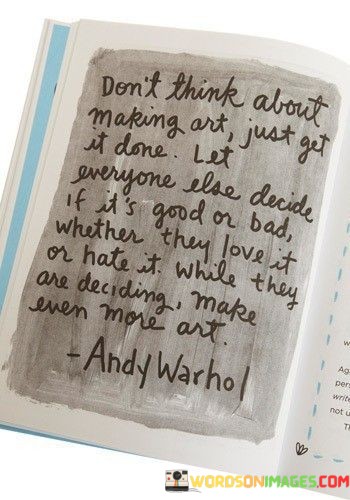 Don't think about
making art, just get
it done. Let
everyone else decide
if it's good or bad,
whether they love it
or hate it. While they
are deciding, make
even more art.
- Andy Warhol
w
Aga
pers
write
not u
Th
WORDSONIMAGES.COM